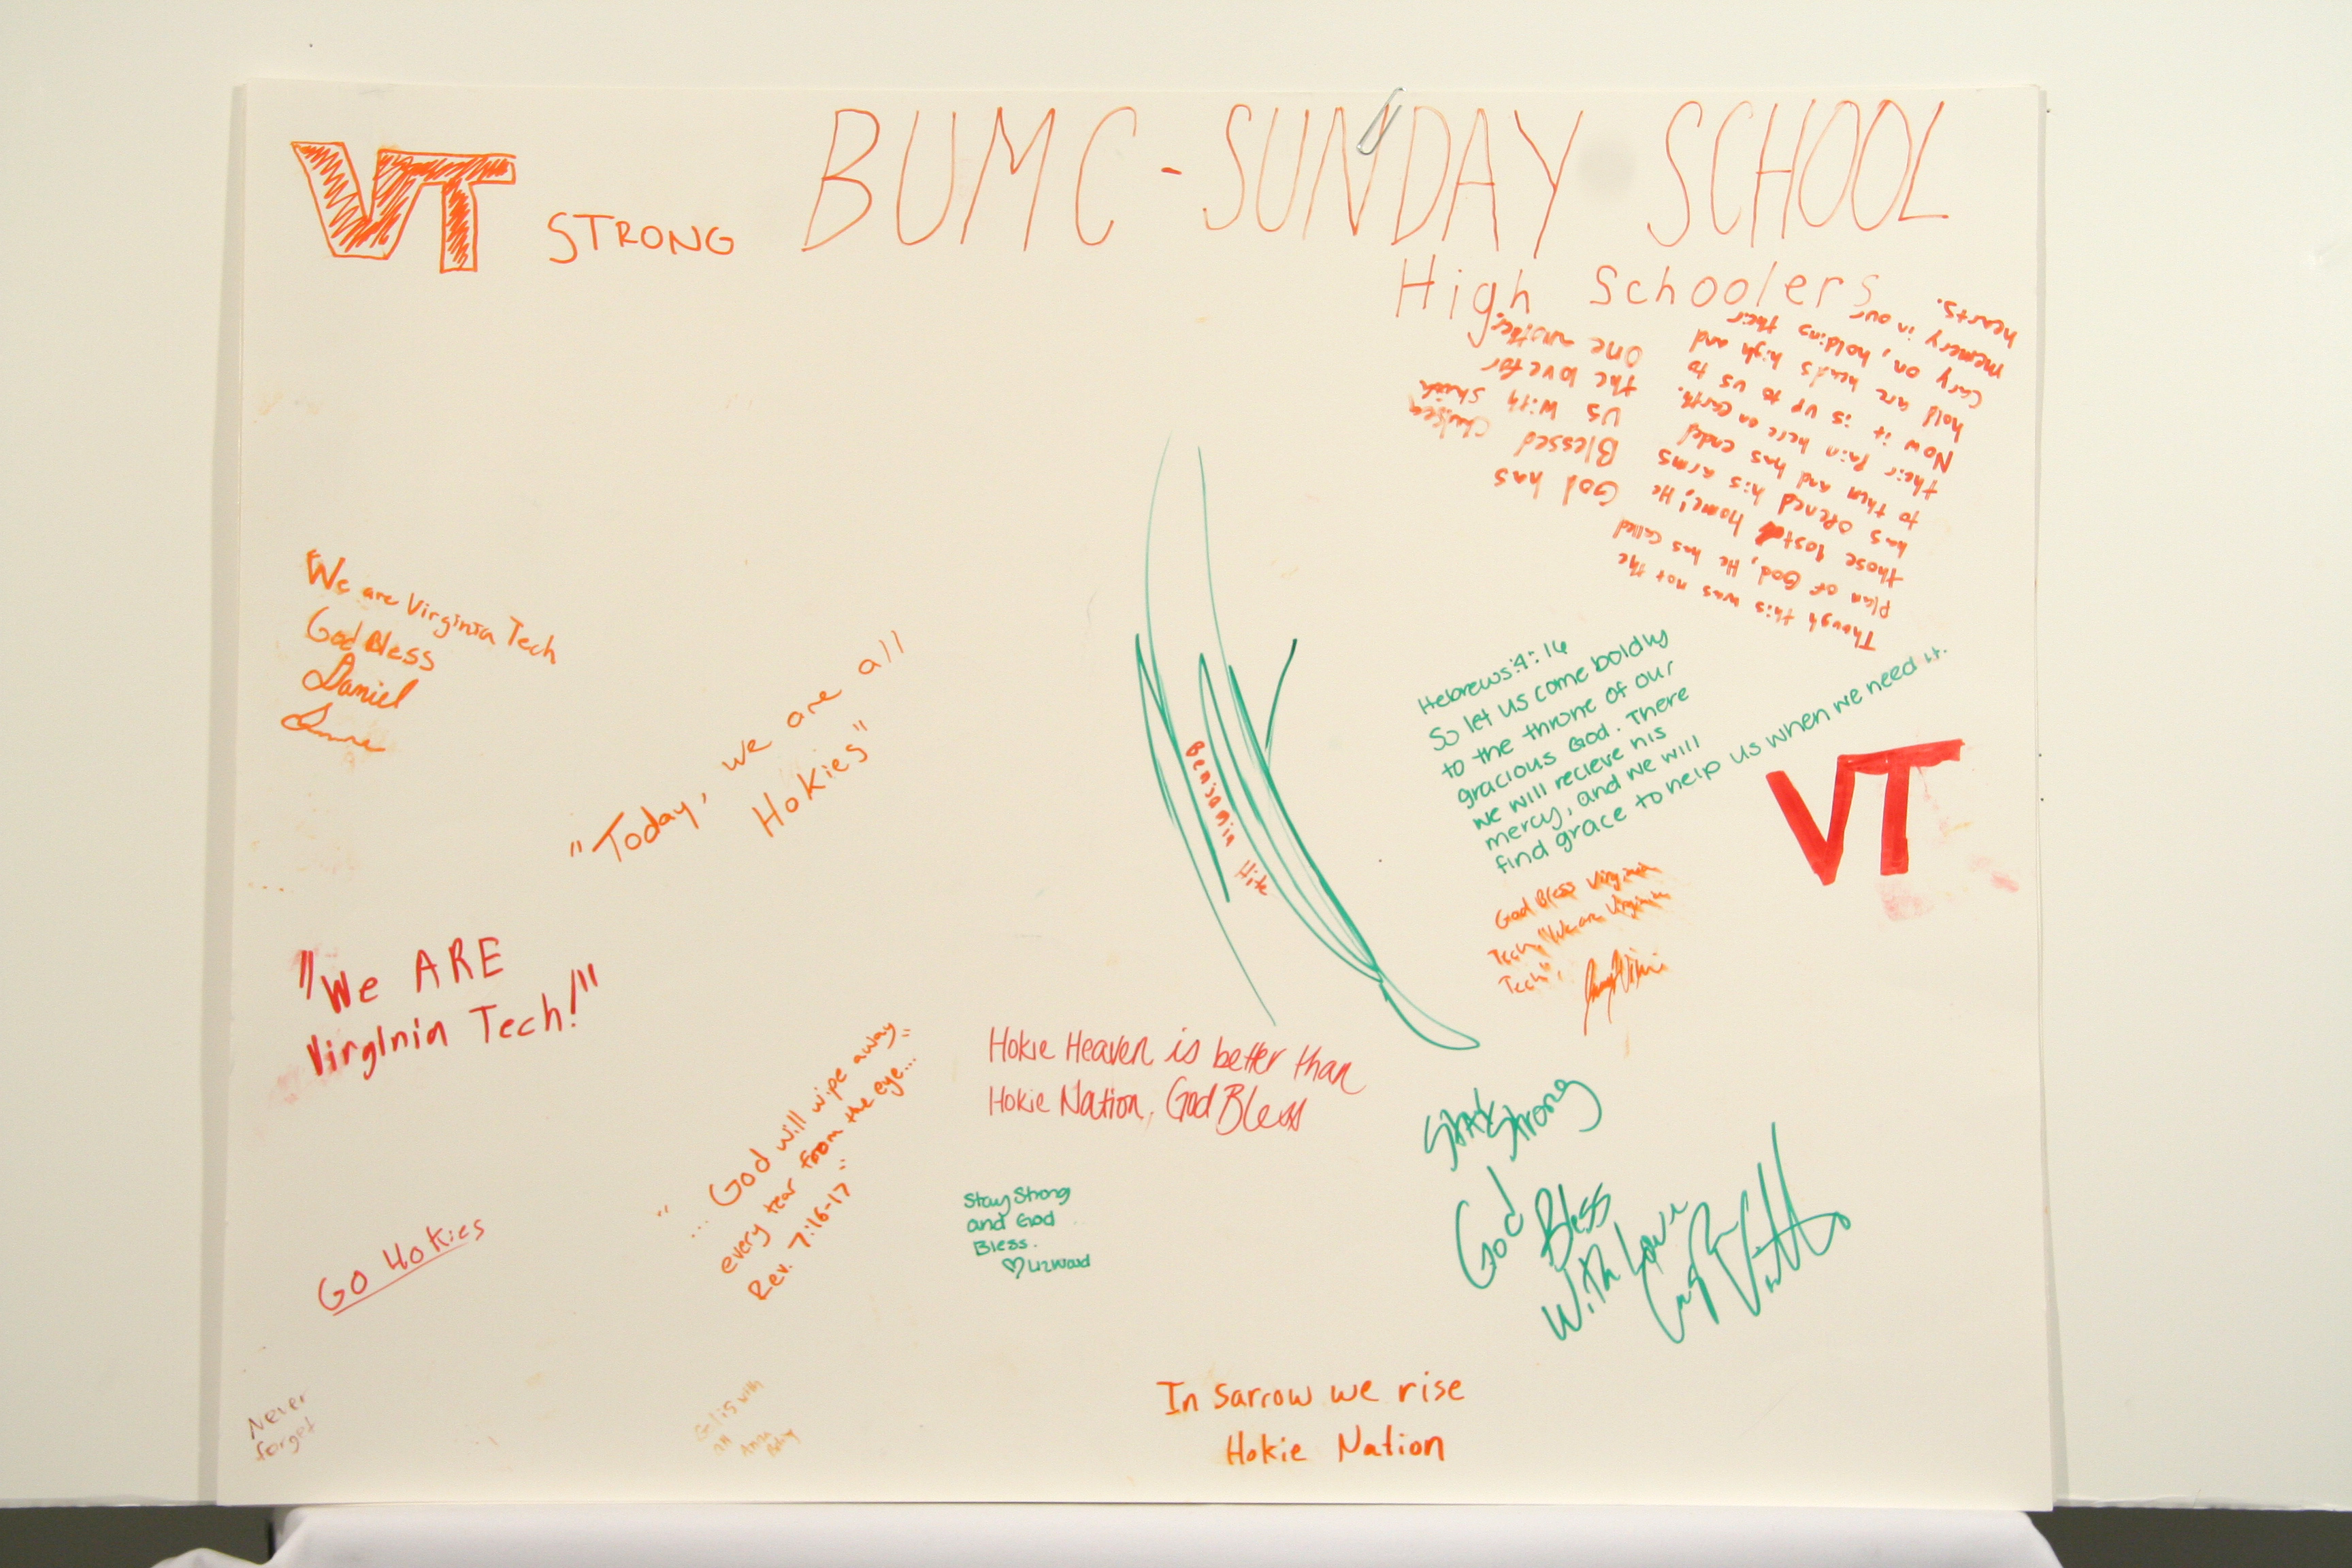 VT STRONG
BUMC - SUNDAY SCHOOL
High Schoolers
Though this was not the
plan of God, He has called
those lost home! He
has opened his arms
to them and has ended
their pain here on earth.
Now it is up to us to
hold are heads high and
cary on, holding their
memery in our
hearts.
God has
Blessed
us with
the love for
one another.
Chelsea
We are Virginia Tech
God Bless
Daniel
"Today, we are all
Hokies"
Benjamin Hite
Hebrews:4:16
So let us come boldly
to the throne of our
gracious God. There
we will recieve his
mercy, and we will
find grace to help us when we need it.
VT
God Bless Virginia
Tech, "We are Virginia
Tech".
"We ARE
VirgInia Tech!"
"...God will wipe away
every tear from the eye..."
Rev. 7:16-17
Hokie Heaven is better than
Hokie Nation, God Bless
Stay Strong
and God
Bless.
♡ Liz Ward
Stay Strong
God Bless
With Love
GO HOKIES
Never
forget
G-d is with
Anna
In sarrow we rise
Hokie Nation